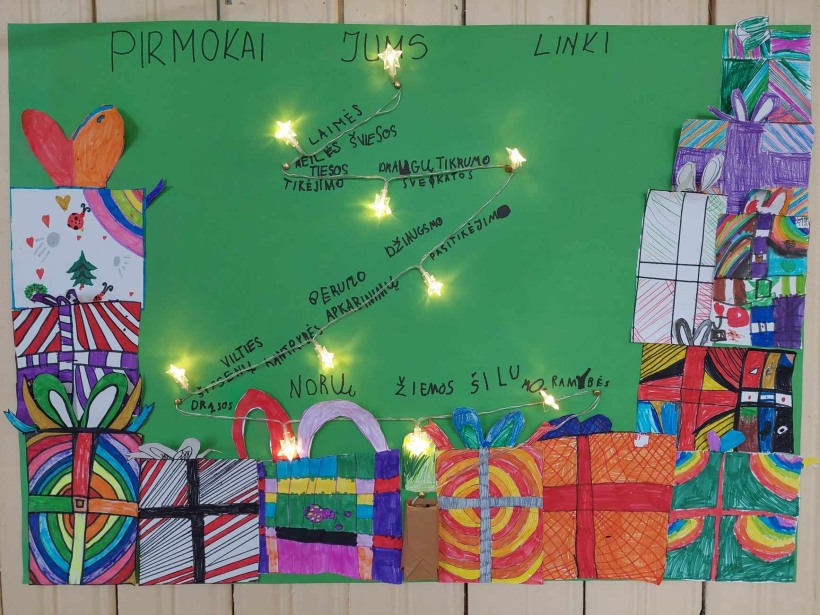 PIRMOKAI JUMS LINKI
LAIMĖS
MEILĖS ŠVIESOS
TIESOS DRAUGŲ, TIKRUMO
TIKĖJIMO SVEIKATOS
DŽIAUGSMO
PASITIKĖJIMO
GERUMO
APKABINIMŲ
VILTIES
KANTRYBĖS
DRĄSOS
NORŲ ŽIEMOS ŠILUMO RAMYBĖS